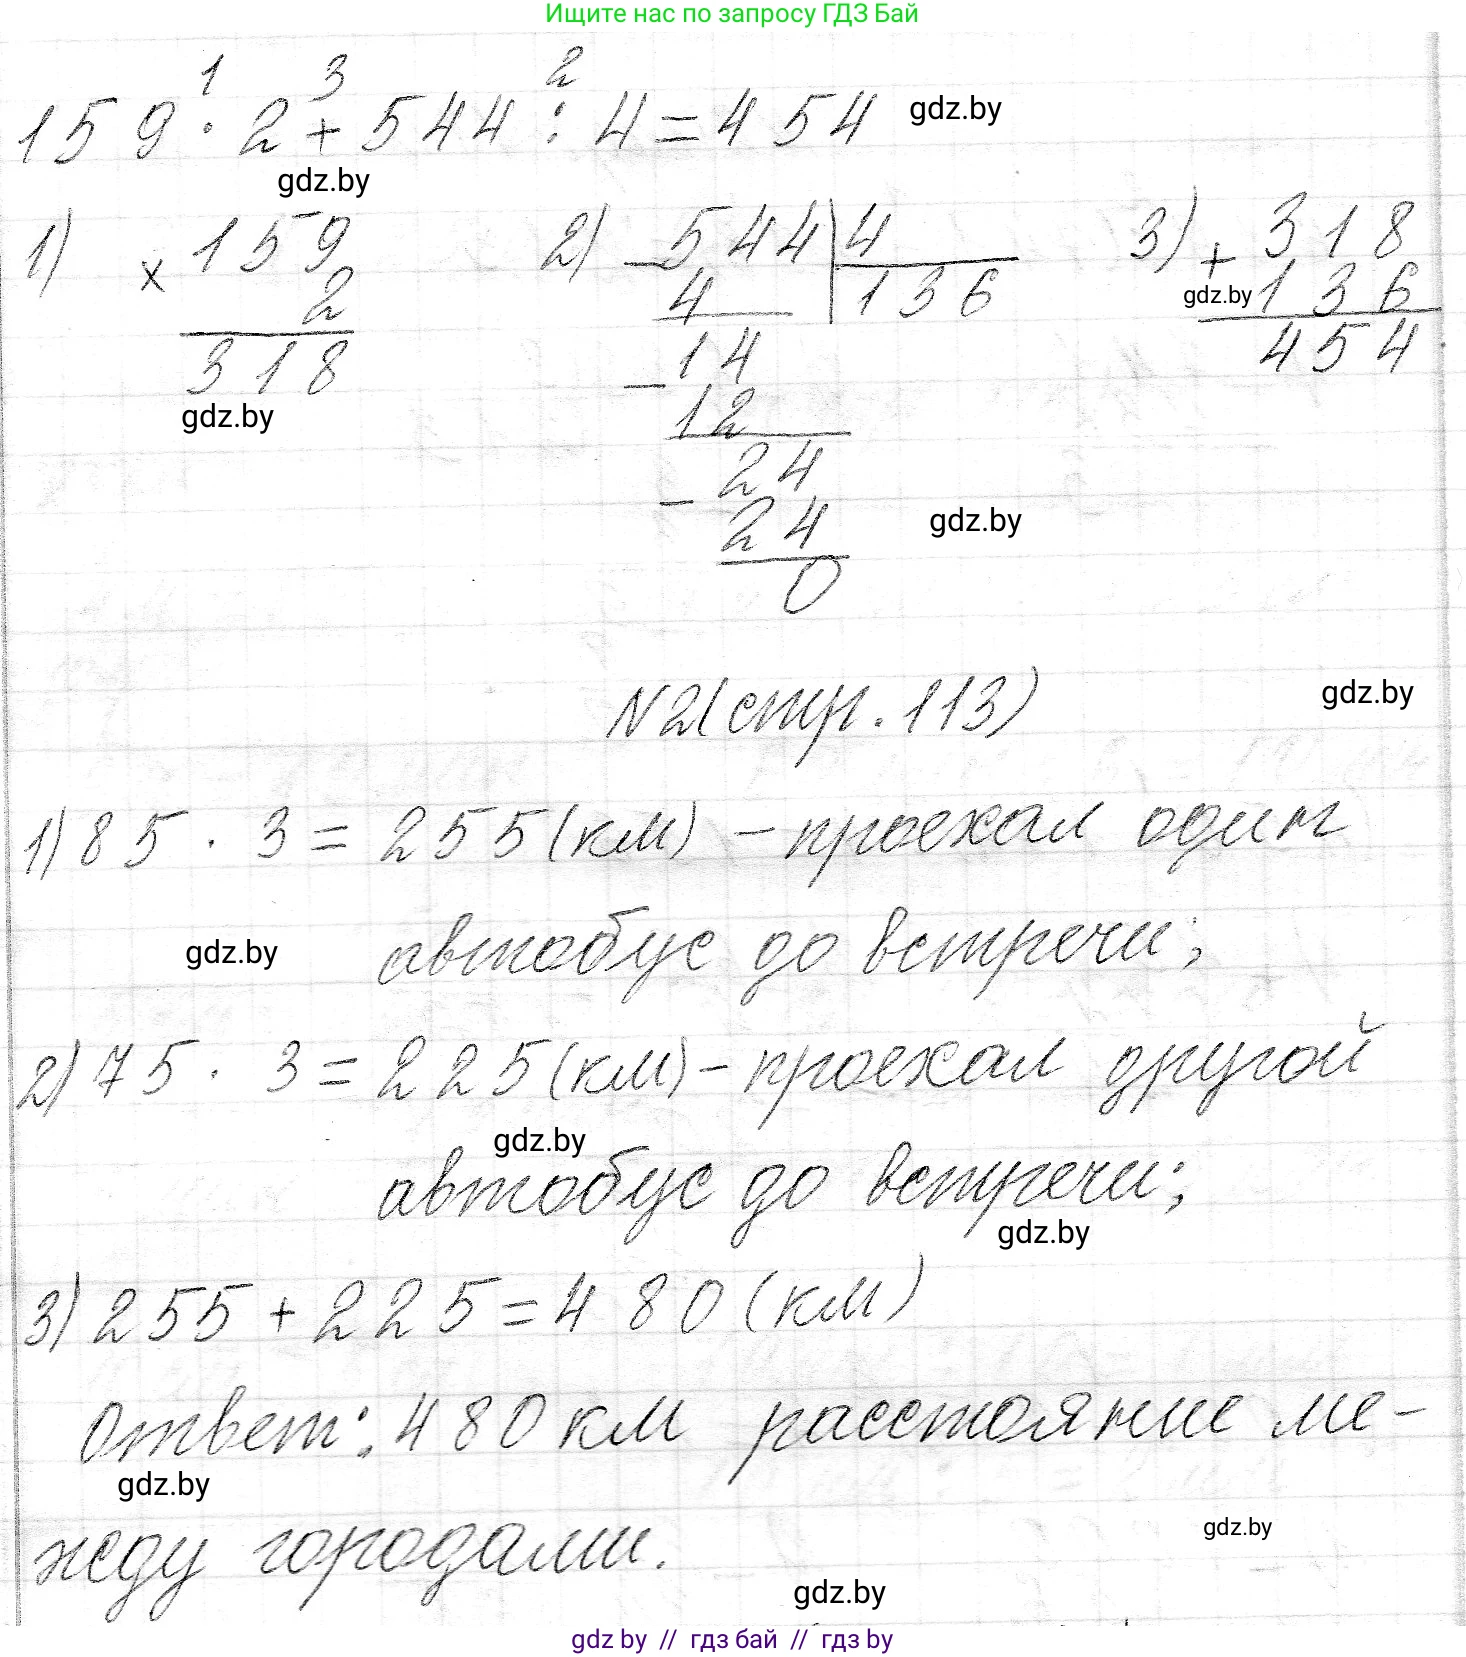 Ищите нас по запросу ГДЗ Бай
1 3 2
159 · 2 + 544 : 4 = 454 gdz.by
gdz.by
1) × 159 2) – 544 | 4 3) + 318
2 4 136 gdz.by 136
318 – 14 454
gdz.by 12
– 24
24 gdz.by
0
N2(стр. 113) gdz.by
1) 85 · 3 = 255 (км) – проехал один
gdz.by автобус до встречи;
2) 75 · 3 = 225 (км) – проехал другой
gdz.by
автобус до встречи;
gdz.by
3) 255 + 225 = 480 (км)
Ответ: 480 км расстояние ме-
gdz.by
жду городами. gdz.by
gdz.by
gdz by // гдз бай // гдз by